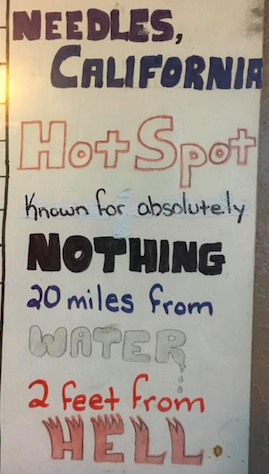 NEEDLES,
CALIFORNIA
HotSpot
Known for absolutely
NOTHING
20 miles from
WATER
2 feet from
HELL